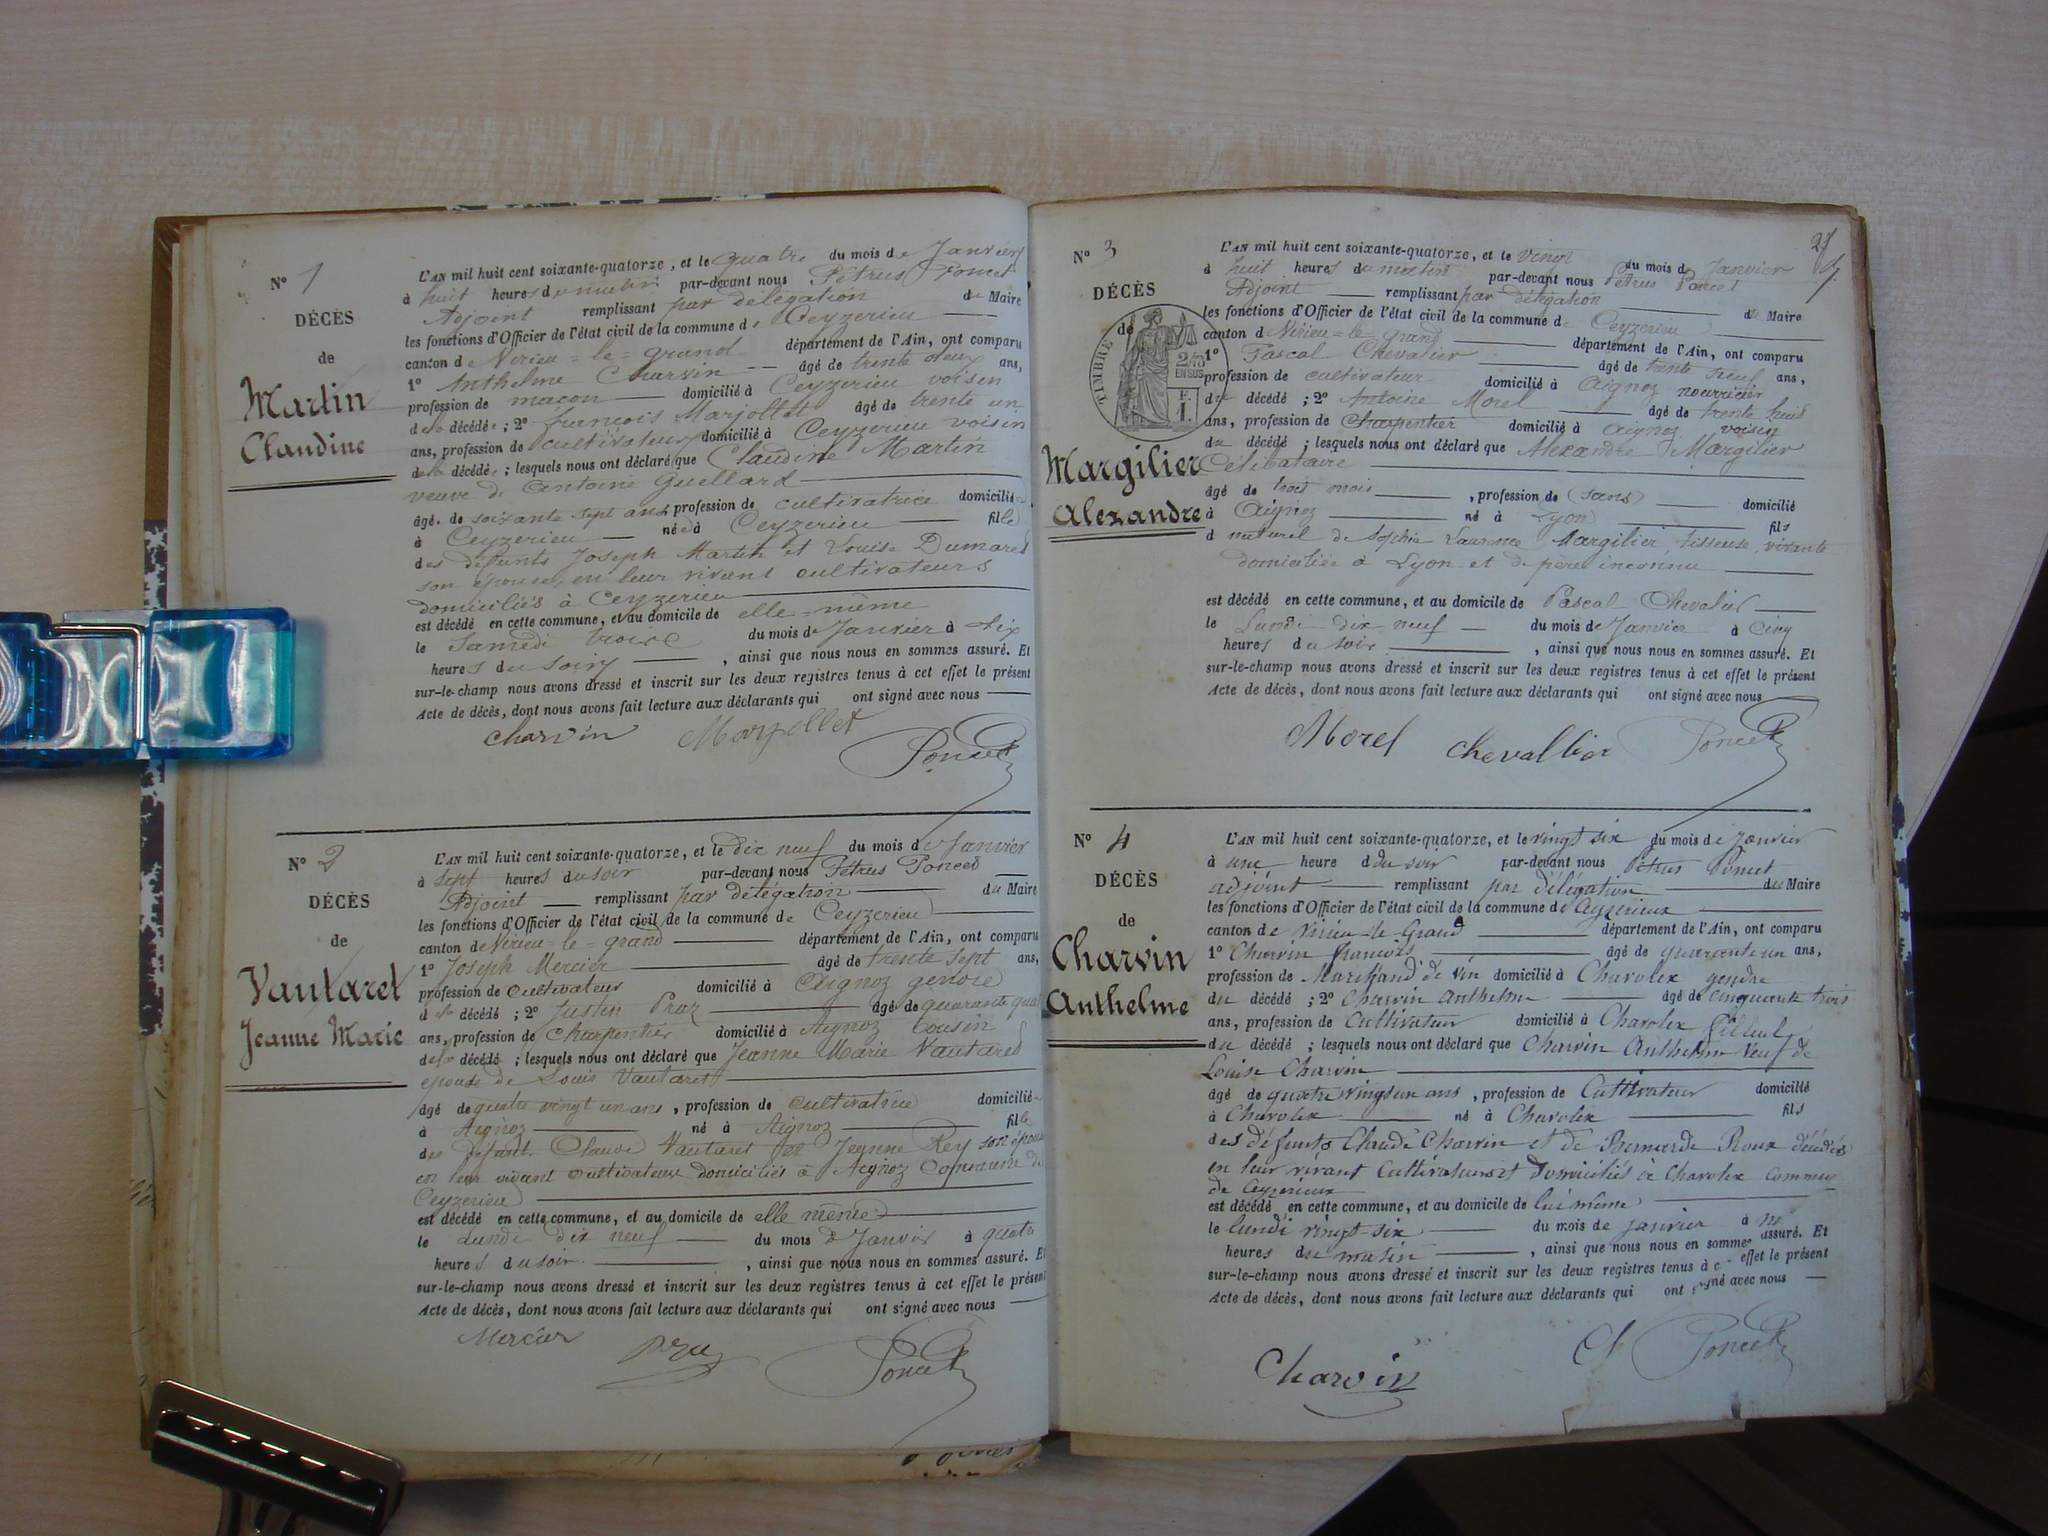 N° 1
DÉCÈS
de
Martin
Claudine
L'AN mil huit cent soixante-quatorze, et le quatre du mois de Janvier
à huit heures du matin par-devant nous Pétrus Poncet
Adjoint remplissant par délégation du Maire
les fonctions d'Officier de l'état civil de la commune de Ceyzerieu
canton de Virieu-le-grand département de l'Ain, ont comparu
1° Anthelme Charvin âgé de trente deux ans,
profession de maçon domicilié à Ceyzerieu voisin
de la décédée ; 2° François Marjollet âgé de trente un
ans, profession de cultivateur domicilié à Ceyzerieu voisin
de la décédée ; lesquels nous ont déclaré que Claudine Martin
veuve de Antoine Guellard
âgé. de soixante sept ans, profession de cultivatrice domicilié
à Ceyzerieu née à Ceyzerieu fille
des défunts Joseph Martin et Louise Dumarest
son épouse, en leur vivant cultivateurs
domiciliés à Ceyzerieu
est décédé en cette commune, et au domicile de elle-même
le Samedi trois du mois de Janvier à six
heures du soir, ainsi que nous nous en sommes assuré. Et
sur-le-champ nous avons dressé et inscrit sur les deux registres tenus à cet effet le présent
Acte de décès, dont nous avons fait lecture aux déclarants qui ont signé avec nous
Charvin Marjollet
Poncet
N° 2
DÉCÈS
de
Vautaret
Jeanne Marie
L'AN mil huit cent soixante-quatorze, et le dix neuf du mois de Janvier
à sept heures du soir par-devant nous Pétrus Poncet
Adjoint remplissant par délégation du Maire
les fonctions d'Officier de l'état civil de la commune de Ceyzerieu
canton de Virieu-le-grand département de l'Ain, ont comparu
1° Joseph Mercier âgé de trente sept ans,
profession de cultivateur domicilié à Aignoz gendre
de la décédé ; 2° Justin Praz âgé de quarante qua
ans, profession de charpentier domicilié à Aignoz cousin
de la décédé ; lesquels nous ont déclaré que Jeanne Marie Vautaret
épouse de Louis Vautaret
âgé de quatre vingt un ans, profession de cultivatrice domicilié
à Aignoz né à Aignoz fille
des défunts Claude Vautaret et Jeanne Rey son épouse
en leur vivant cultivateurs domiciliés à Aignoz Commune de
Ceyzerieu
est décédé en cette commune, et au domicile de elle même
le Lundi dix neuf du mois de Janvier à quatre
heures du soir, ainsi que nous nous en sommes assuré. Et
sur-le-champ nous avons dressé et inscrit sur les deux registres tenus à cet effet le présent
Acte de décès, dont nous avons fait lecture aux déclarants qui ont signé avec nous
Mercier Poncet
N° 3
DÉCÈS
de
TIMBRE
2/10
EN SUS
F.
1.
Margilier
Alexandre
L'AN mil huit cent soixante-quatorze, et le vingt du mois de Janvier
à huit heures du matin par-devant nous Pétrus Poncet
Adjoint remplissant par délégation du Maire
les fonctions d'Officier de l'état civil de la commune de Ceyzerieu
canton de Virieu-le-grand département de l'Ain, ont comparu
1° Pascal Chevalier âgé de trente neuf ans,
profession de cultivateur domicilié à Aignoz nourricier
du décédé ; 2° Antoine Morel âgé de trente huit
ans, profession de Charpentier domicilié à Aignoz voisin
du décédé ; lesquels nous ont déclaré que Alexandre Margilier
Célibataire
âgé de trois mois, profession de (sans) domicilié
à Aignoz né à Lyon fils
d naturel de Sophie Laurence Margilier, tisseuse, vivante
domiciliée à Lyon et de père inconnu
est décédé en cette commune, et au domicile de Pascal Chevalier
le Lundi dix neuf du mois de Janvier à Cinq
heures du soir, ainsi que nous nous en sommes assuré. Et
sur-le-champ nous avons dressé et inscrit sur les deux registres tenus à cet effet le présent
Acte de décès, dont nous avons fait lecture aux déclarants qui ont signé avec nous
Morel Chevallier Poncet
N° 4
DÉCÈS
de
Charvin
Anthelme
L'AN mil huit cent soixante-quatorze, et le vingt six du mois de Janvier
à une heure d du soir par-devant nous Pétrus Poncet
adjoint remplissant par délégation du Maire
les fonctions d'Officier de l'état civil de la commune de Ceyzerieux
canton de Virieu-le Grand département de l'Ain, ont comparu
1° Charvin François âgé de quarante un ans,
profession de Marchand de vin domicilié à Chavolex gendre
du décédé ; 2° Charvin Anthelme âgé de cinquante trois
ans, profession de Cultivateur domicilié à Chavolex filleul
du décédé ; lesquels nous ont déclaré que Charvin Anthelme Veuf de
Louise Charvin
âgé de quatre vingt un ans, profession de Cultivateur domicilié
à Chavolex né à Chavolex fils
des défunts Claude Charvin et de Bernarde Roux décédés
en leur vivant Cultivateurs et domiciliés à Chavolex Commune
de Ceyzerieux
est décédé en cette commune, et au domicile de lui même
le lundi vingt-six du mois de janvier à
heures du matin, ainsi que nous nous en sommes assuré. Et
sur-le-champ nous avons dressé et inscrit sur les deux registres tenus à c effet le présent
Acte de décès, dont nous avons fait lecture aux déclarants qui ont signé avec nous
Charvin Ch Poncet